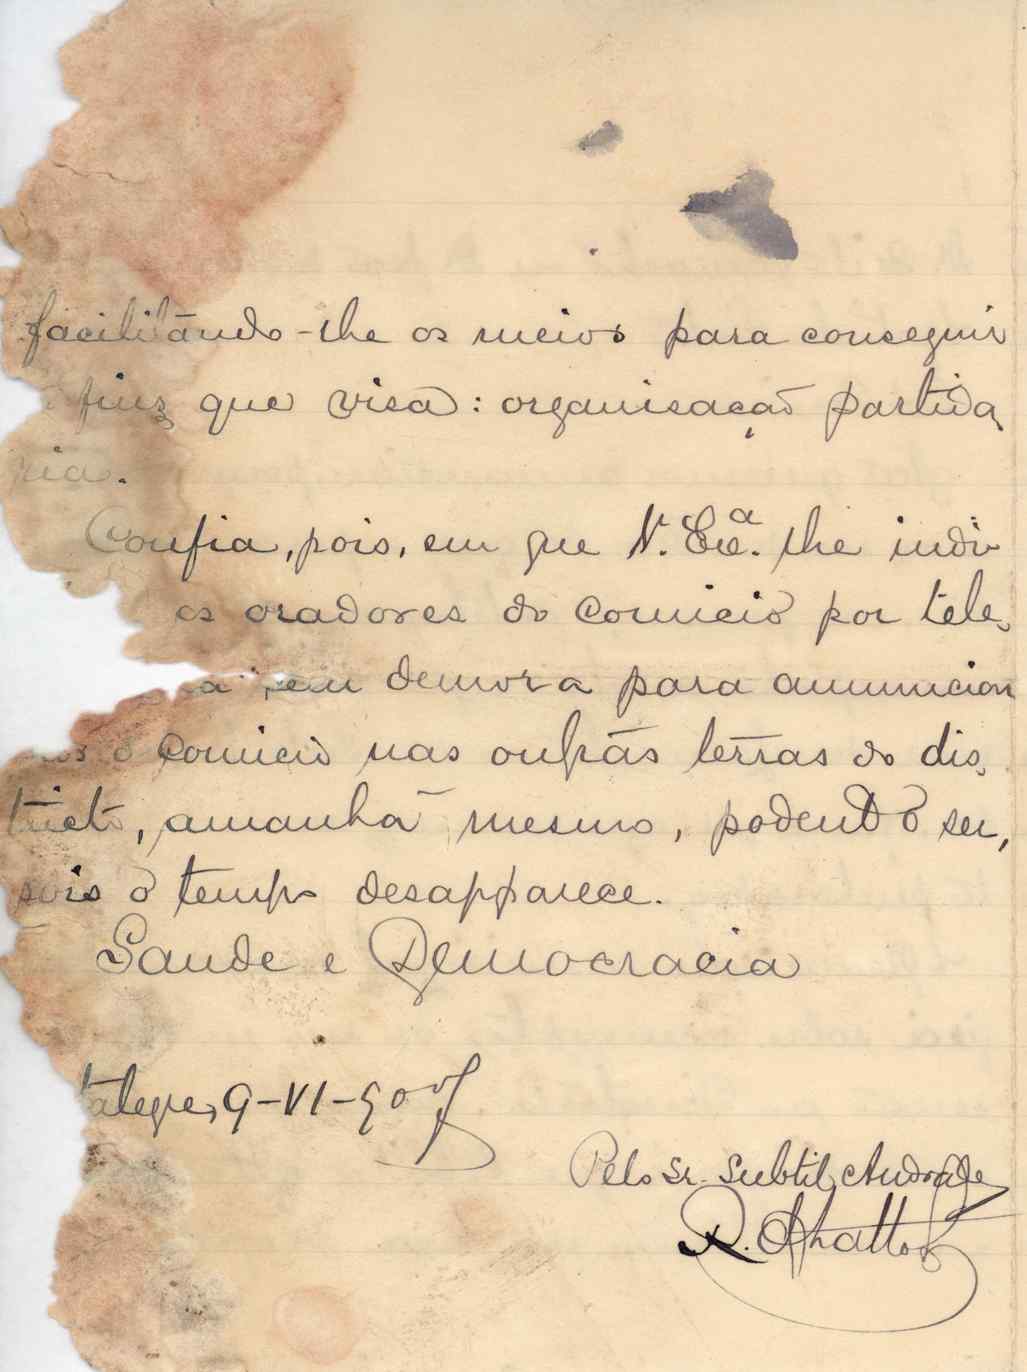 facilitando-lhe os meios para conseguir
fins que visa: organisação partida
ria.
Confia, pois, em que V. Exª. lhe indi
os oradores do comicio por tele,
sem demora para annuncion
mos o comicio nas outras terras do dis,
tricto, amanhã mesmo, podendo ser,
pois o tempo desapparece.
Saude e Democracia
talegre, 9-VI-90
Pelo Sr. Subtil Andrade
R.